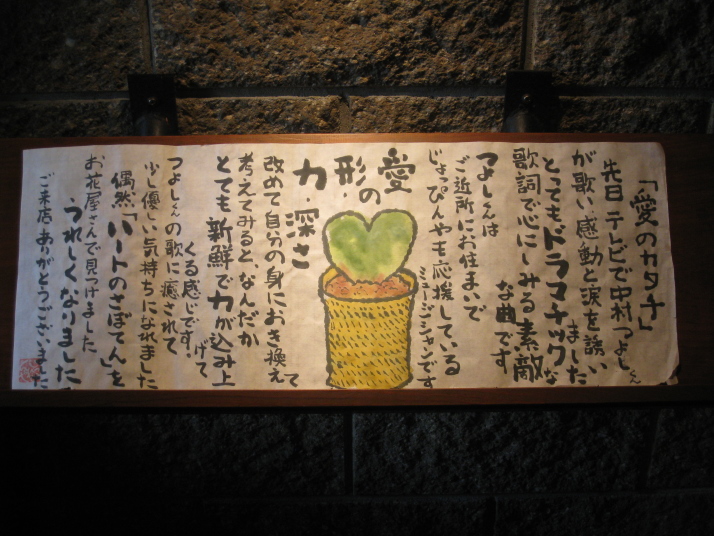 「愛のカタチ」
先日テレビで中村つよしくん
が歌い感動と涙を誘い
ました
とってもドラマチックな
歌詞で心にしみる素敵
な曲です
つよしくんは
ご近所にお住まいで
じょっぴんやも応援している
ミュージシャンです
愛の
形・
力・
深さ
改めて自分の身におき換えて
考えてみると、なんだか
とても新鮮で力が込み上
げて
くる感じです。
つよしくんの歌に癒されて
少し優しい気持ちになれました
偶然、「ハートのさぼてん」を
お花屋さんで見つけました
うれしくなりました
ご来店ありがとうございました